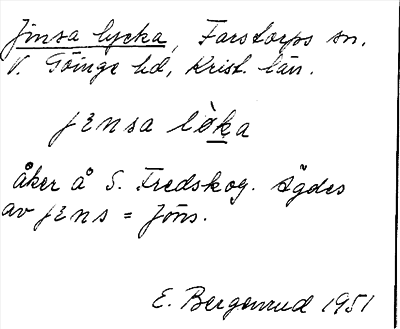 Jinsa lycka, Farstorps sn.
V. Göinge hd, Krist. län.
jensa lòka
åker å S. Fredskog. Ägdes
av jens = Jöns.
E. Bergenrud 1951